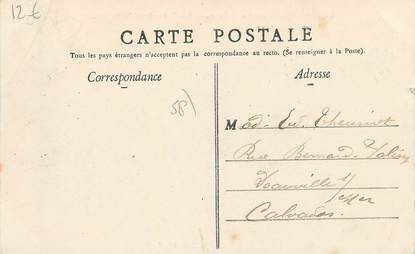 12€
CARTE POSTALE
Tous les pays étrangers n'acceptent pas la correspondance au recto. (Se renseigner à la Poste).
Correspondance
Adresse
58)
Mad. Ed.
Rue Bernard
Deauville s/
mer
Calvados.